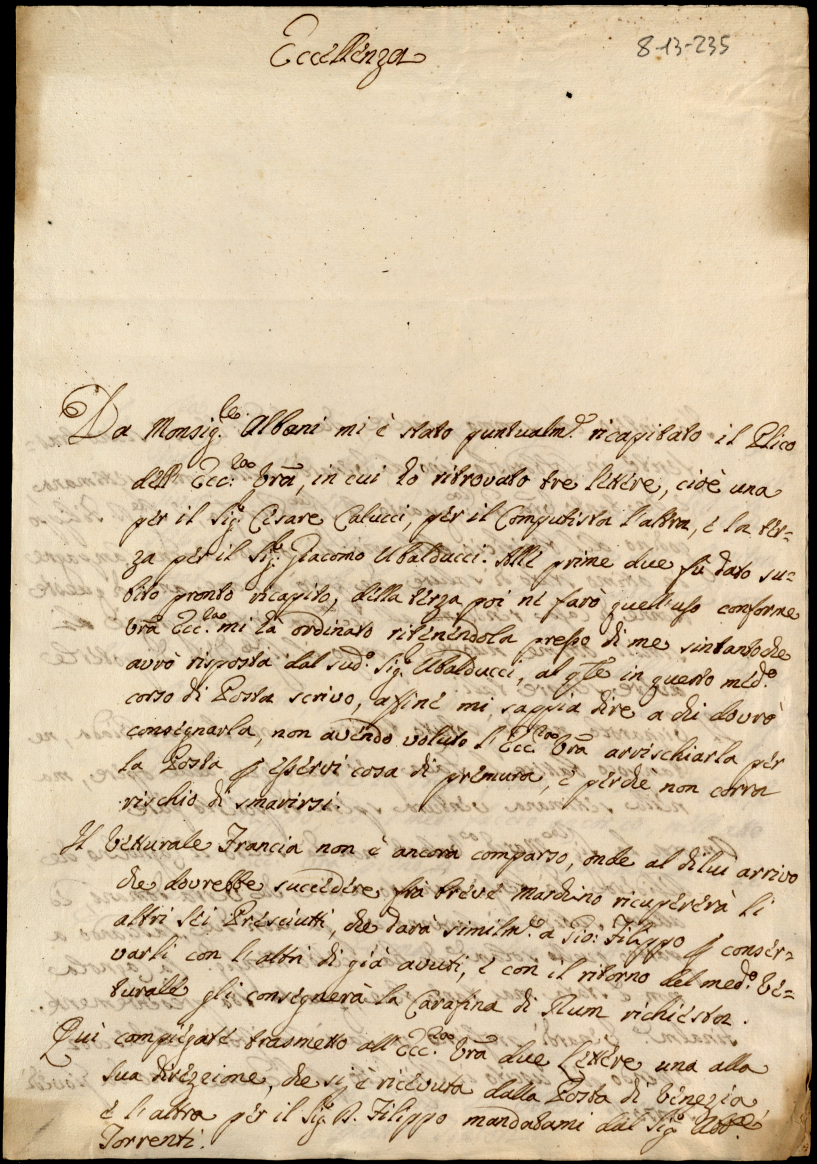 Eccellenza
8-13-235
Da Monsig.le Albani mi è stato puntualm.e ricapitato il Plico
dell' Ecc.za Vra, in cui hò ritrovato tre lettere, cioè una
per il Sig.r Cesare Calucci, per il Computista l'altra, e la ter=
za per il Sig.r Giacomo Ubalducci. Alle prime due fù dato su=
bito pronto ricapito, della terza poi ne farò quell'uso conforme
Vra Ecc.za mi hà ordinato ritenendola presso di me sintantoche
avrò risposta dal sud.o Sig.r Ubalducci, al qle in questo med.o
corso di Posta scrivo, affine mi sappia dire a chi dovrò
consegnarla, non avendo voluto l'Ecc.za Vra arrischiarla per
la Posta p esservi cosa di premura, e perchè non corra
rischio di smarirsi.
Il Vetturale Francia non è ancora comparso, onde al dilui arrivo
che dovrebbe succedere frà breve Marchino ricupererà li
altri sei Presciutti, che darà similm.e a Gio: Filippo p conser=
varli con l'altri di già avuti, e con il ritorno del med.o Vet=
turale gli consegnerà la Carafina di Rum richiesta.
Qui compiegate trasmetto all'Ecc.za Vra due Lettere una alla
sua direzione, che si è ricevuta dalla Posta di Venezia
e l'altra per il Sig.r D. Filippo mandatami dal Sig.r Abb.e
Torrenti.